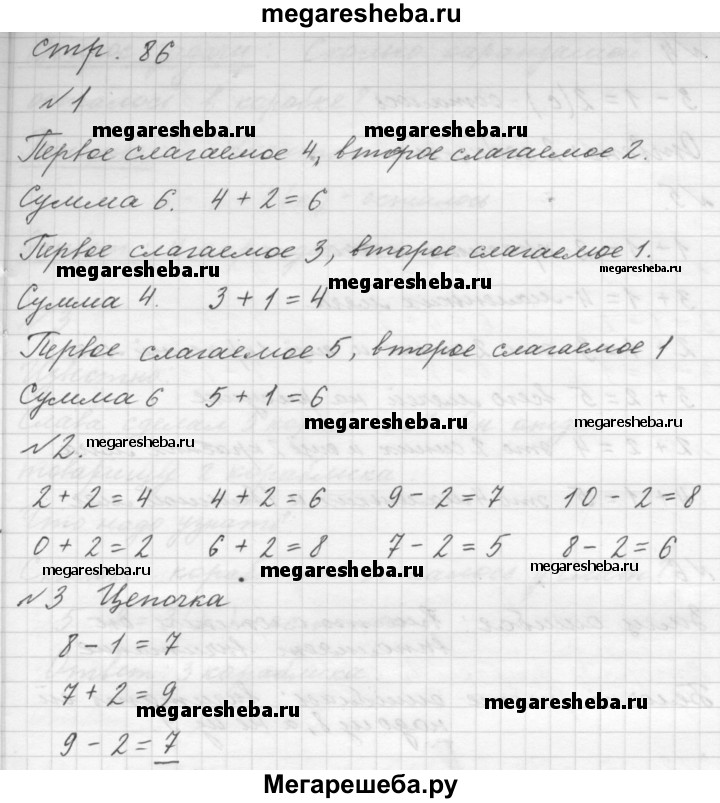 megaresheba.ru
стр. 86
№1
megaresheba.ru megaresheba.ru
Первое слагаемое 4, второе слагаемое 2.
Сумма 6. 4 + 2 = 6
Первое слагаемое 3, второе слагаемое 1.
megaresheba.ru megaresheba.ru megaresheba.ru
Сумма 4. 3 + 1 = 4
Первое слагаемое 5, второе слагаемое 1
Сумма 6 5 + 1 = 6
№2. megaresheba.ru megaresheba.ru
2 + 2 = 4 4 + 2 = 6 9 - 2 = 7 10 - 2 = 8
0 + 2 = 2 6 + 2 = 8 7 - 2 = 5 8 - 2 = 6
megaresheba.ru megaresheba.ru megaresheba.ru
№3 Цепочка
8 - 1 = 7
7 + 2 = 9
megaresheba.ru megaresheba.ru
9 - 2 = 7
Мегарешеба.ру